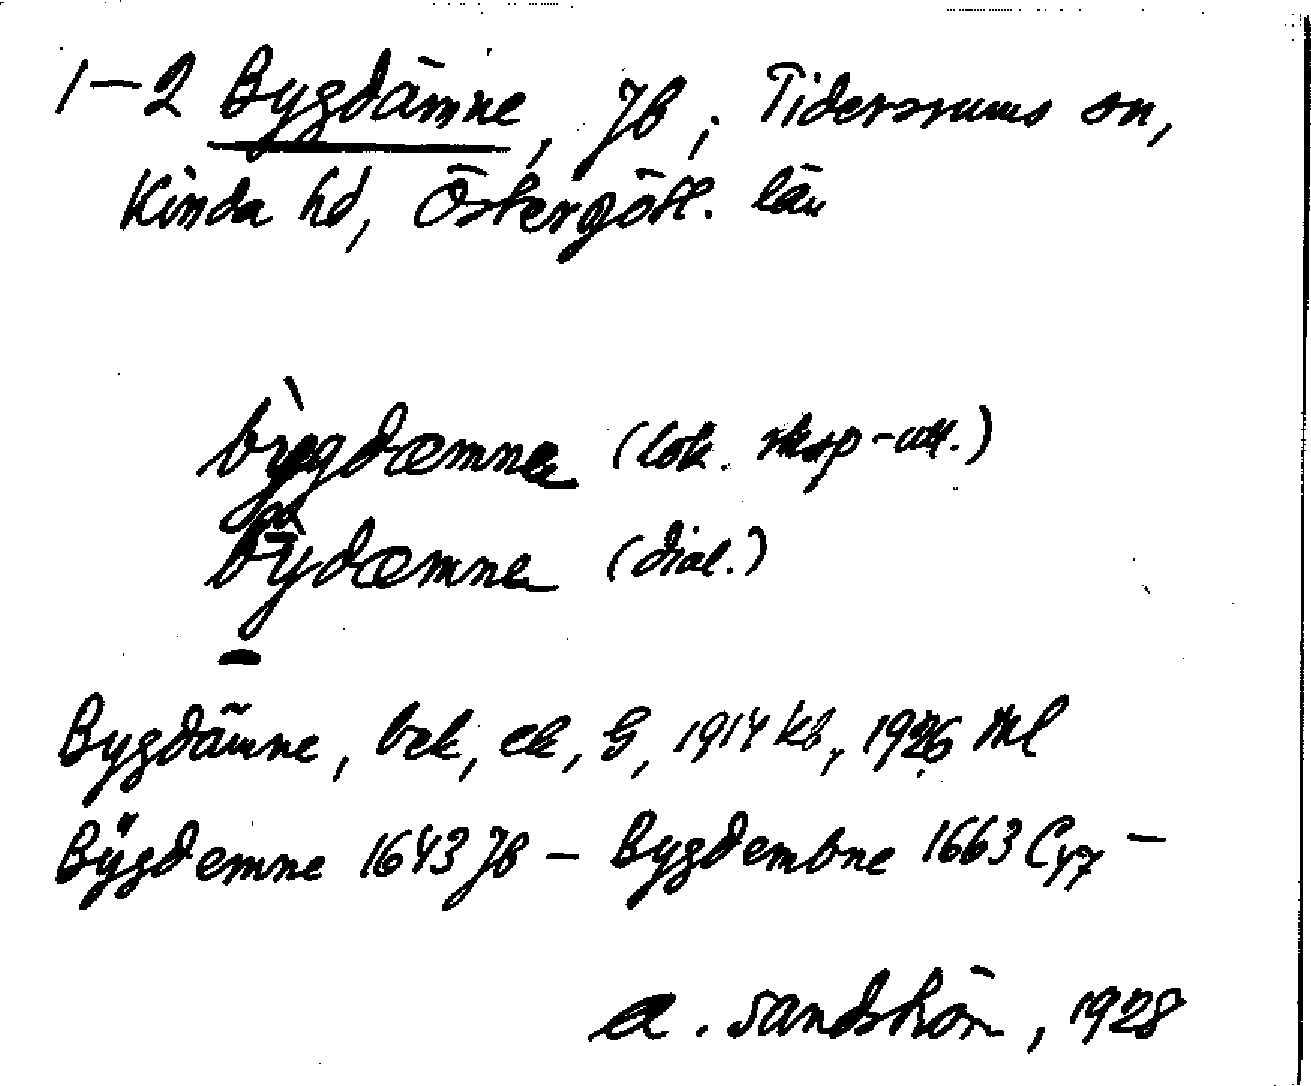 1–2 Bygdämne, JB; Tidersrums sn,
Kinda hd, Östergötl. län
bỳgdæmne (lok. rksp-utt.)
på
bỳdæmne (dial.)
–
Bygdämne, bek, ek, G, 1914 kb, 1926 Ml
Bÿgdemne 1643 JB – Bygdembne 1663 C 47 –
A. Sandström, 1928